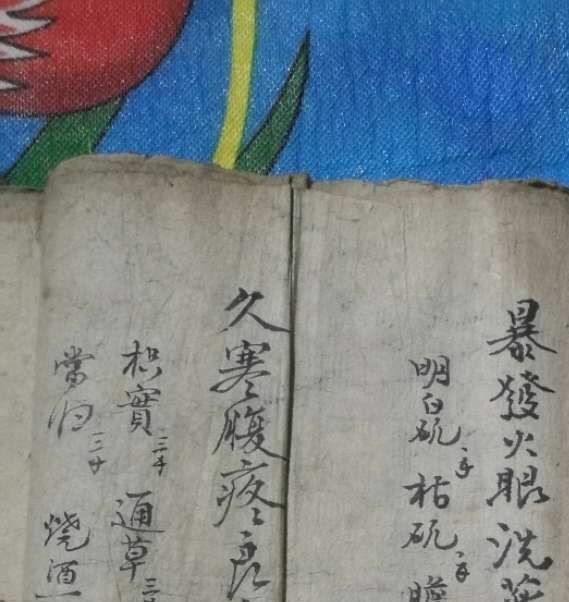 暴發火眼洗藥
明白矾 枯矾
久寒腹疼良
枳實三千 通草
當归 燒酒